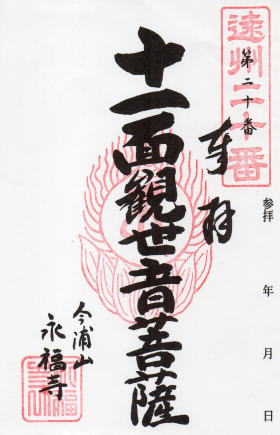 遠州二十番
第二十番
奉拝
参拝 年 月 日
十一面観世音菩薩
今浦山
永福寺